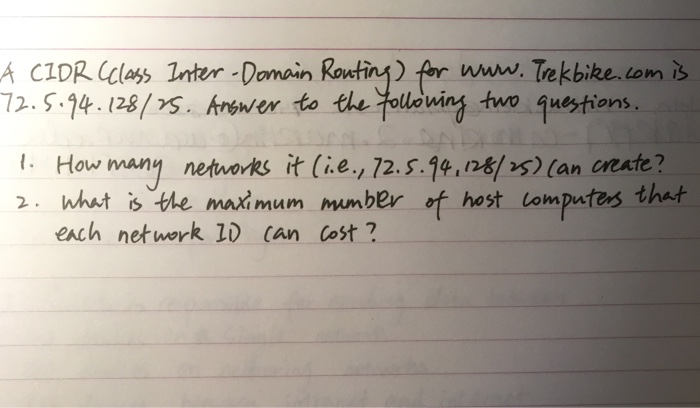 A CIDR (class Inter-Domain Routing) for www.Trekbike.com is
72.5.94.128/25. Answer to the following two questions.
1. How many networks it (i.e., 72.5.94,128/25) can create?
2. What is the maximum number of host computers that
each network ID can cost?